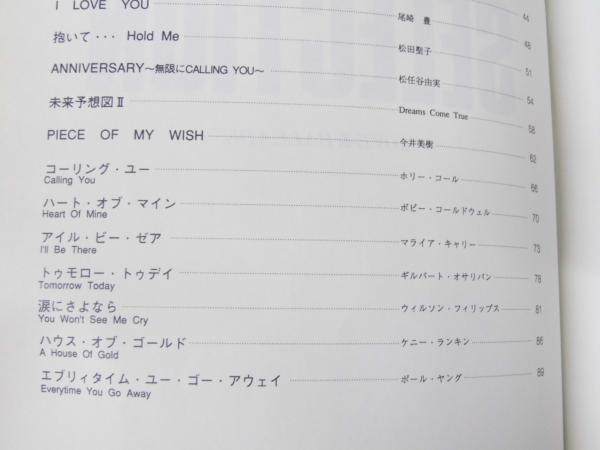 I LOVE YOU 尾崎 豊 44
抱いて・・・ Hold Me 松田聖子 48
ANNIVERSARY～無限にCALLING YOU～ 松任谷由実 51
未来予想図Ⅱ Dreams Come True 54
PIECE OF MY WISH 今井美樹 58
62
コーリング・ユー ホリー・コール 66
Calling You
ハート・オブ・マイン ボビー・コールドウェル 70
Heart Of Mine
アイル・ビー・ゼア マライア・キャリー 73
I'll Be There
トゥモロー・トゥデイ ギルバート・オサリバン 78
Tomorrow Today
涙にさよなら ウィルソン・フィリップス 81
You Won't See Me Cry
ハウス・オブ・ゴールド ケニー・ランキン 86
A House Of Gold
エブリィタイム・ユー・ゴー・アウェイ ポール・ヤング 89
Everytime You Go Away